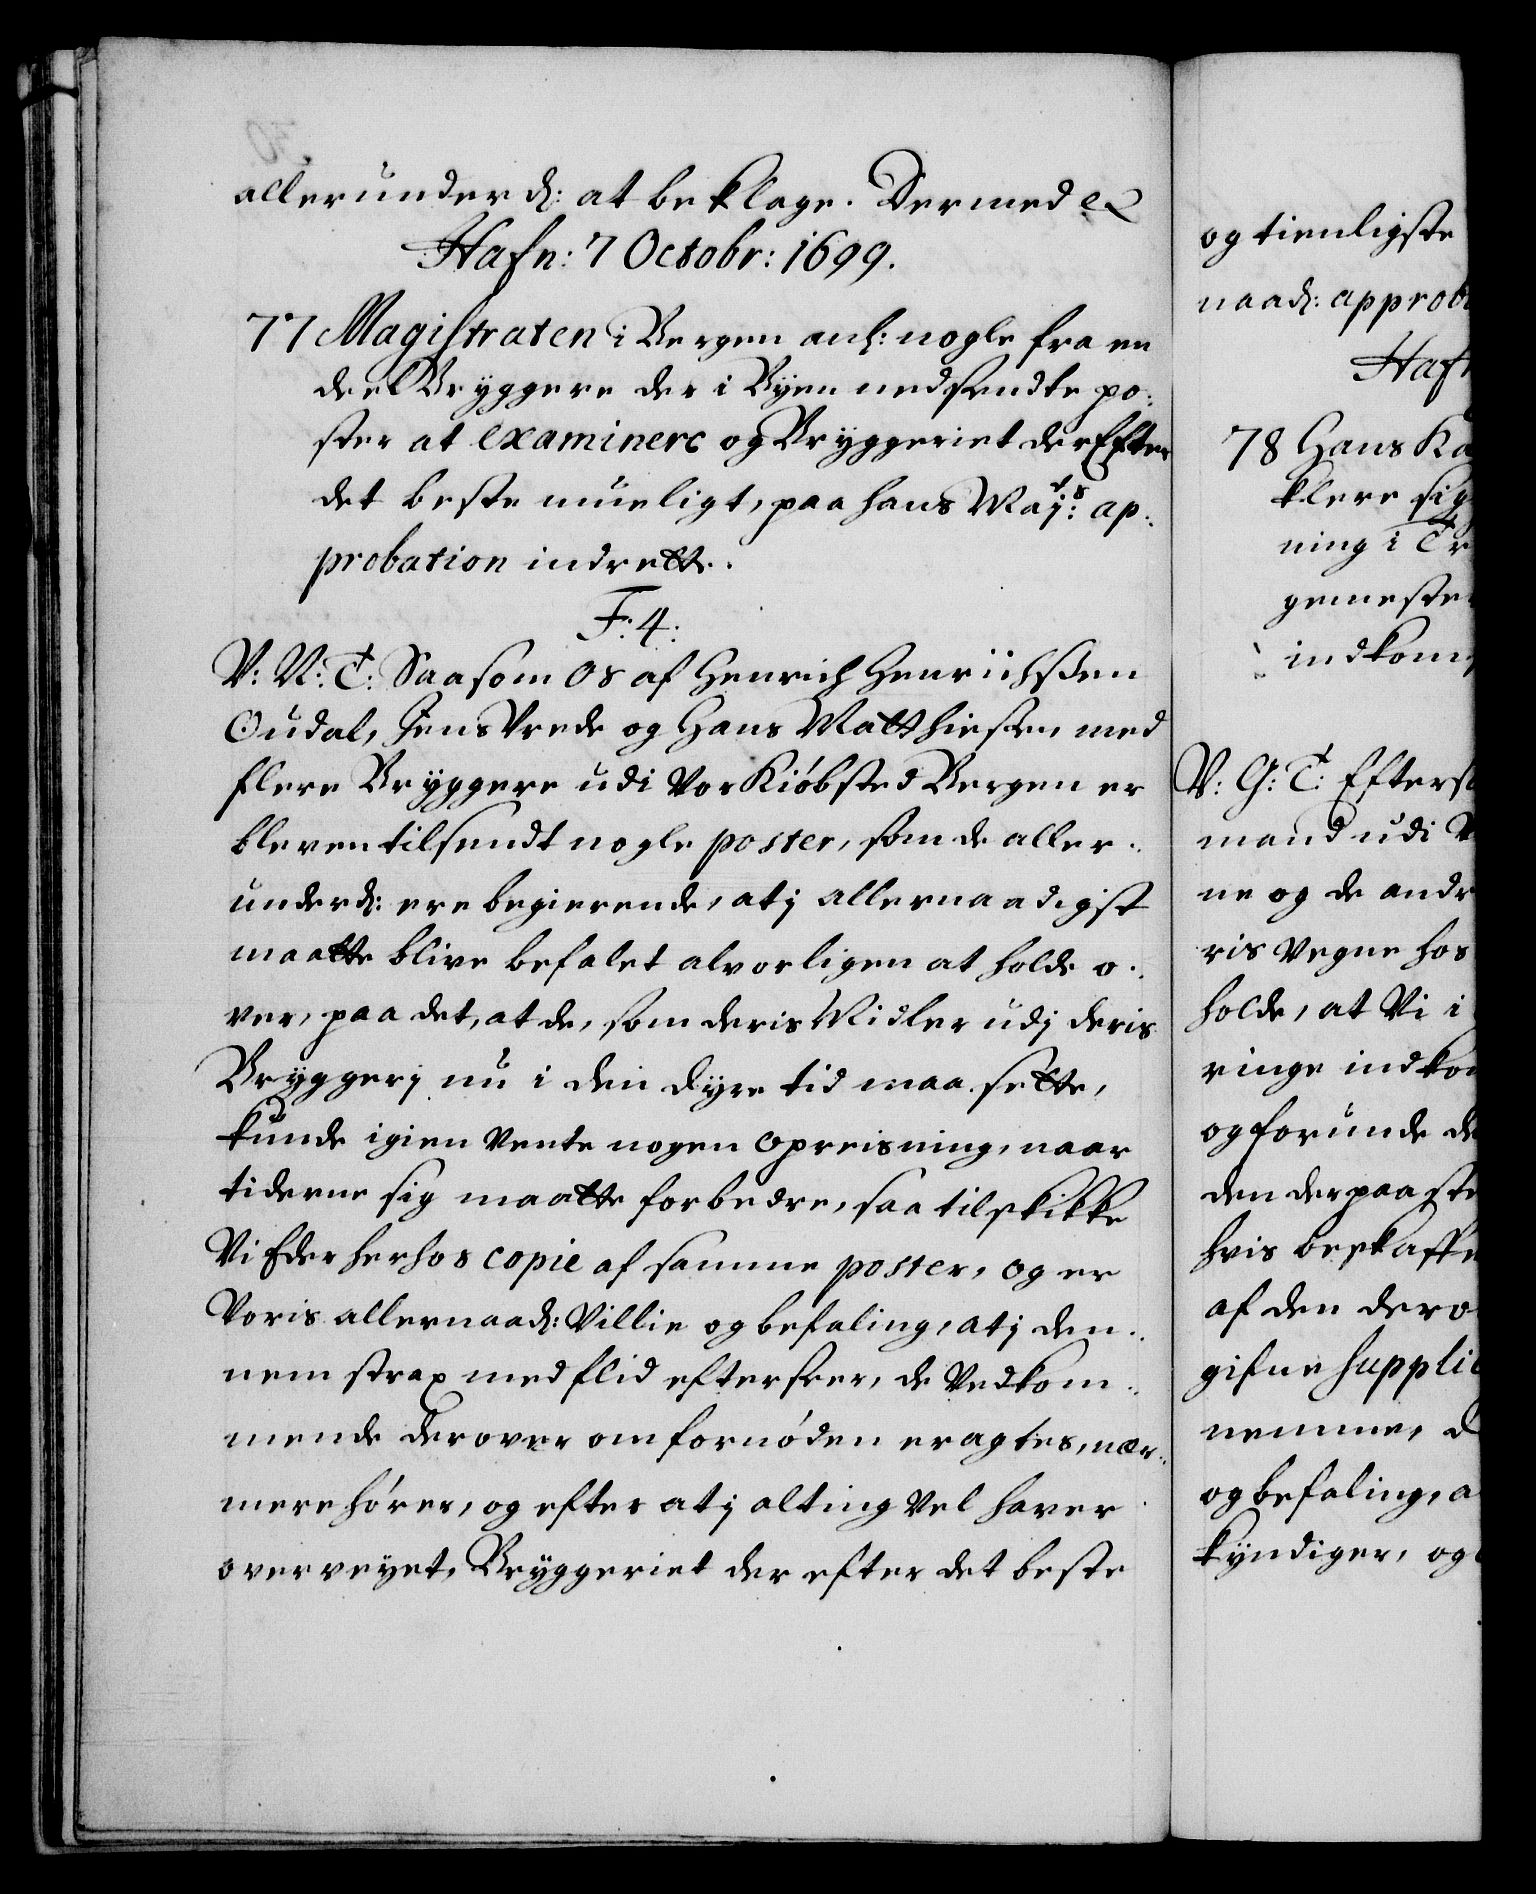 allerunderd: at beklage. Dermed etc
Hafn: 7 Octobr: 1699.
77 Magistraten i Bergen anl: nogle fra en
deel Bryggere der i Byen nedsendte po:
ster at examinere og Bryggeriet der Efter
det beste mueligt, paa hans Maj:ts ap:
probation indrette.
F: 4:
V: N: T: Saasom Os af Henrich Henrichssen
Oudal, Jens Vrede og Hans Matthiessen, med
flere Bryggere udi Vor Kiøbsted Bergen er
bleven tilsendt nogle poster, som de aller:
underd: ere begierende, at j allernaadigst
maatte blive befalet alvorligen at holde o:
ver, paa det, at de, som deris Midler udj deris
Bryggerj nu i den dyre tid maa sette,
kunde igien Vente nogen Opreisning, naar
tiderne sig maatte forbedre, saa tilskikke
Vi Eder herhos copie af samme poster, og er
Voris allernaad: Villie og befaling, at j den:
nem strax med flid efterseer, de Vedkom:
mende derover om fornøden eragtes, nær:
mere hører, og efter at j alting Vel haver
overveyet, Bryggeriet der efter det beste
og tienligste
naad: approb
Haf
78 Hans Ka
klere sig
ning i Tr
gemeste
indkom
V: G: T: Efters
mand udi V
ne og de andr
ris Vegne hos
holde, at Vi i
ringe indkom
og forunde de
den der paa ste
hvis beskaffe
af den dero
gifne Supplic
nemme, d
og befaling, a
kyndiger, og